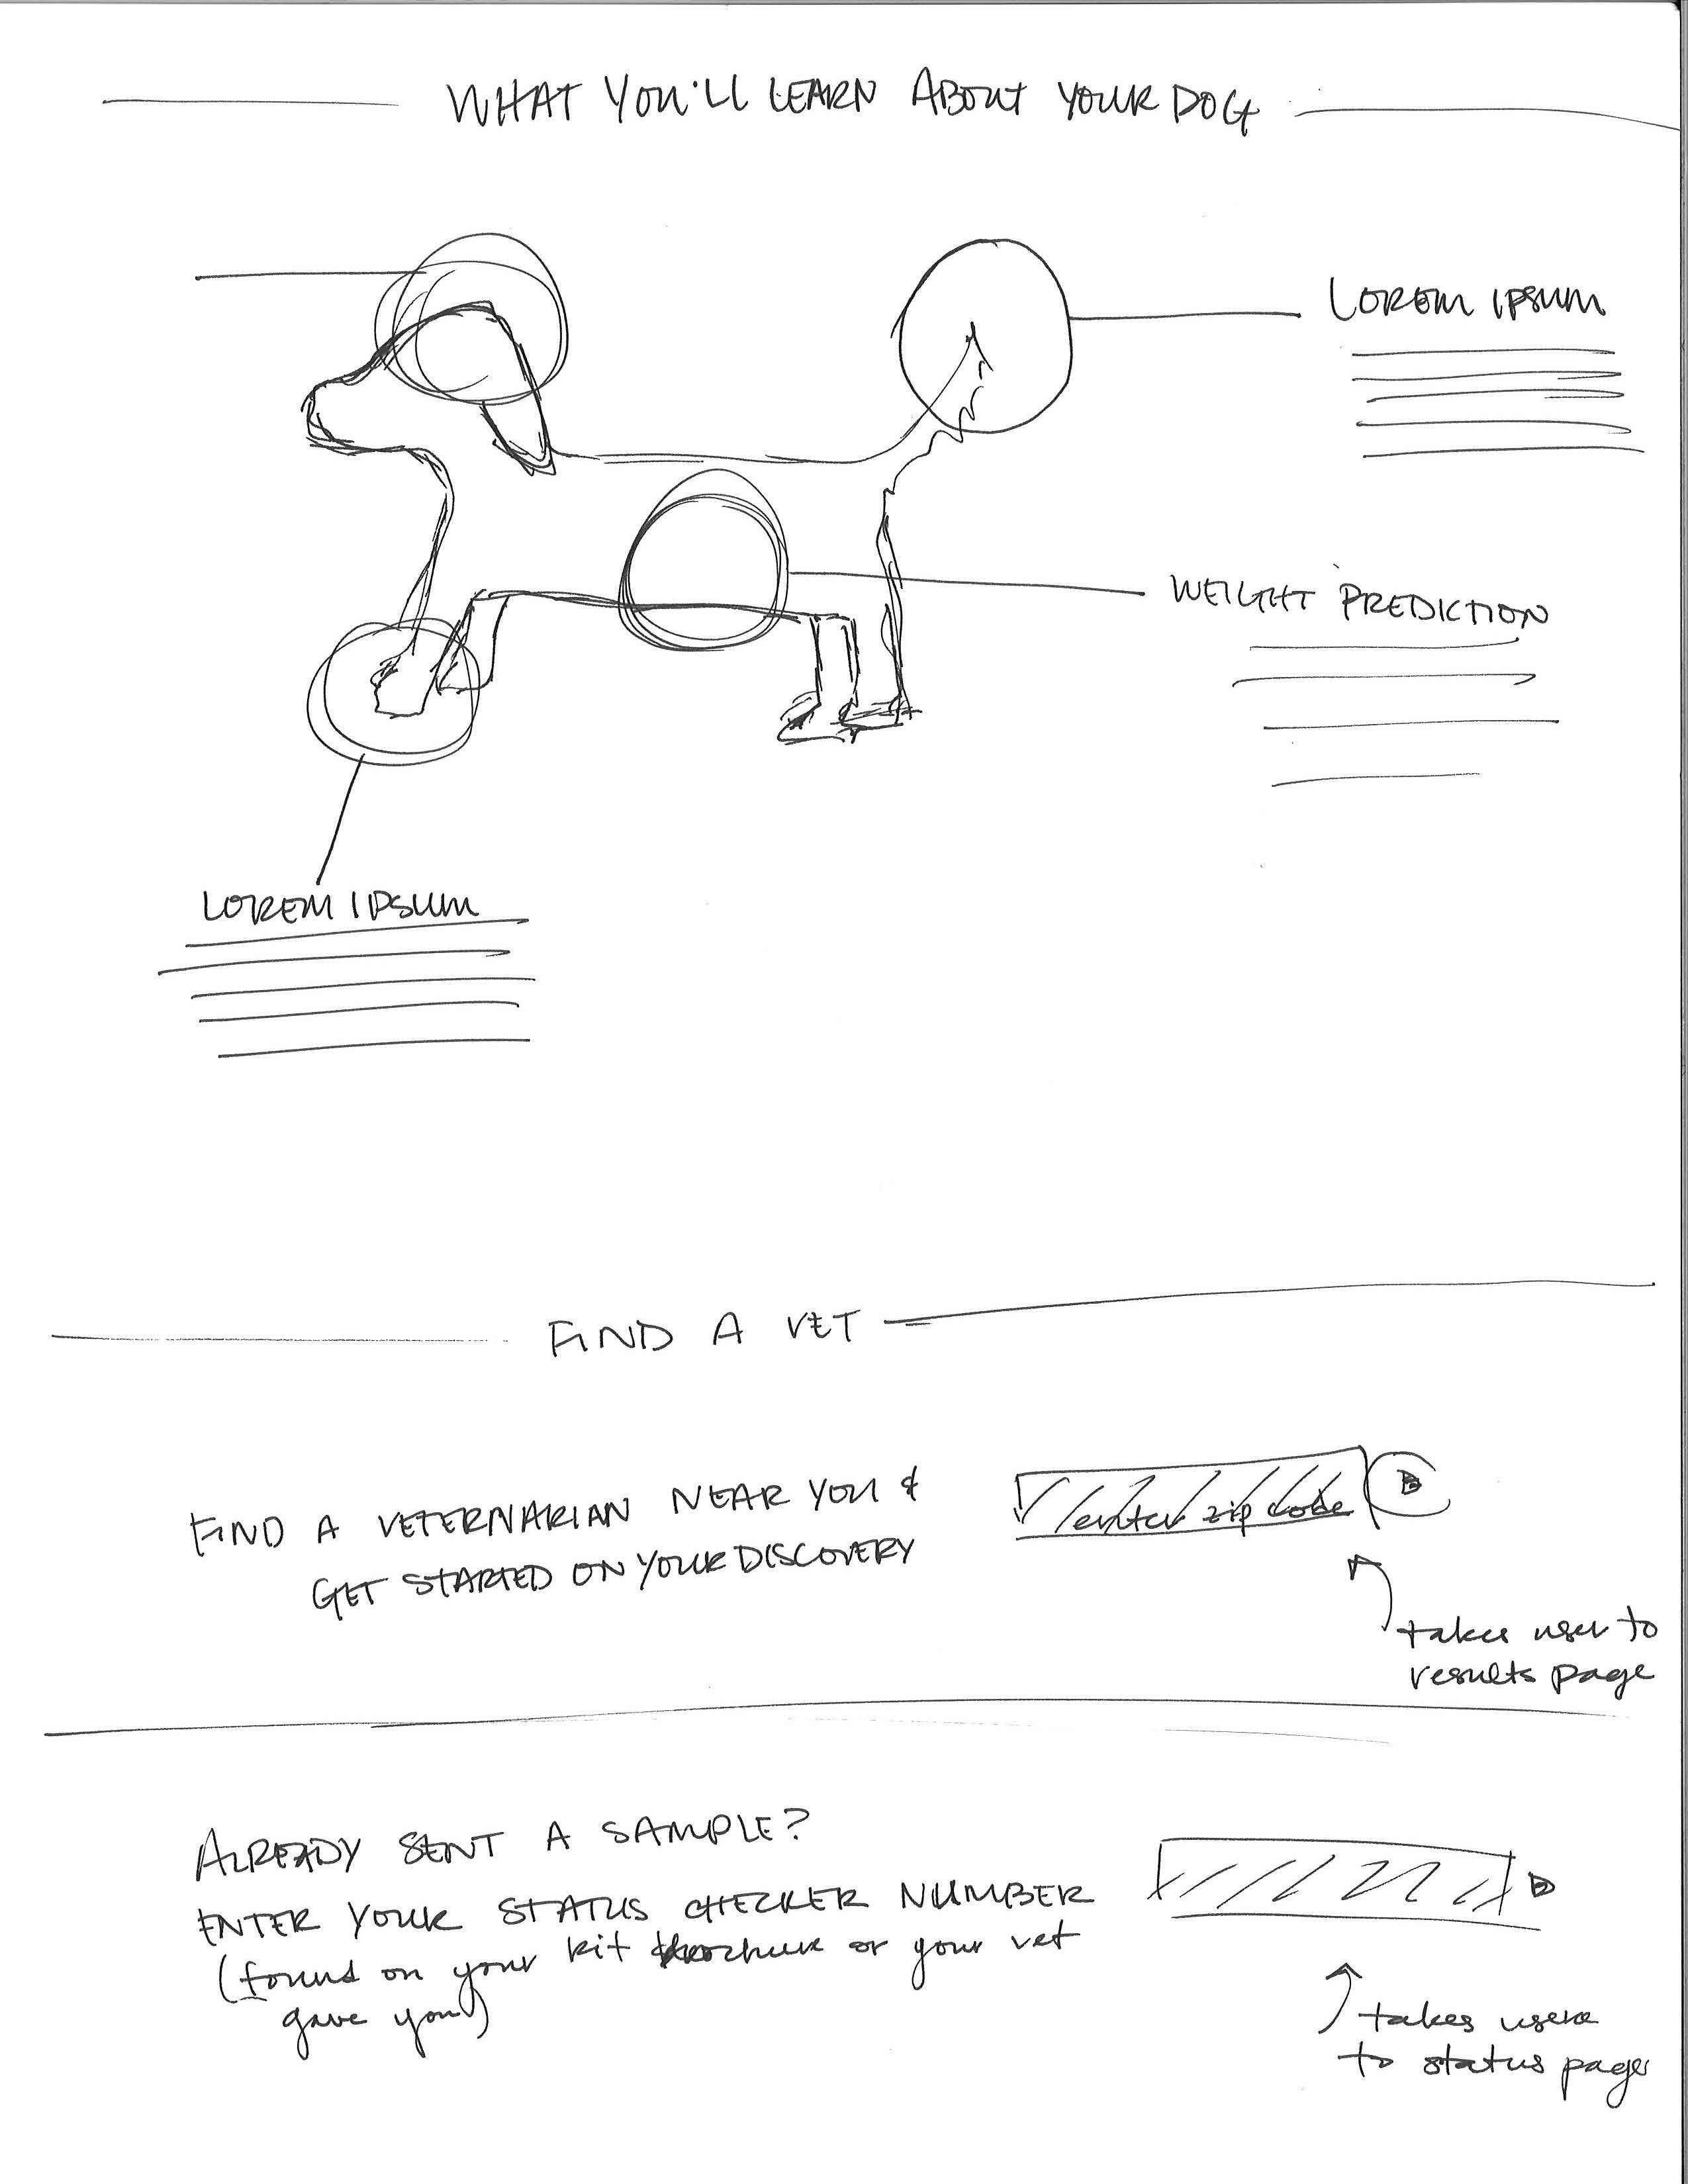 WHAT YOU'LL LEARN ABOUT YOUR DOG
LOREM IPSUM
WEIGHT PREDICTION
LOREM IPSUM
FIND A VET
FIND A VETERNARIAN NEAR YOU &
GET STARTED ON YOUR DISCOVERY
enter zip code
takes user to
results page
ALREADY SENT A SAMPLE?
ENTER YOUR STATUS CHECKER NUMBER
(found on your kit brochure or your vet
gave you)
takes users
to status page